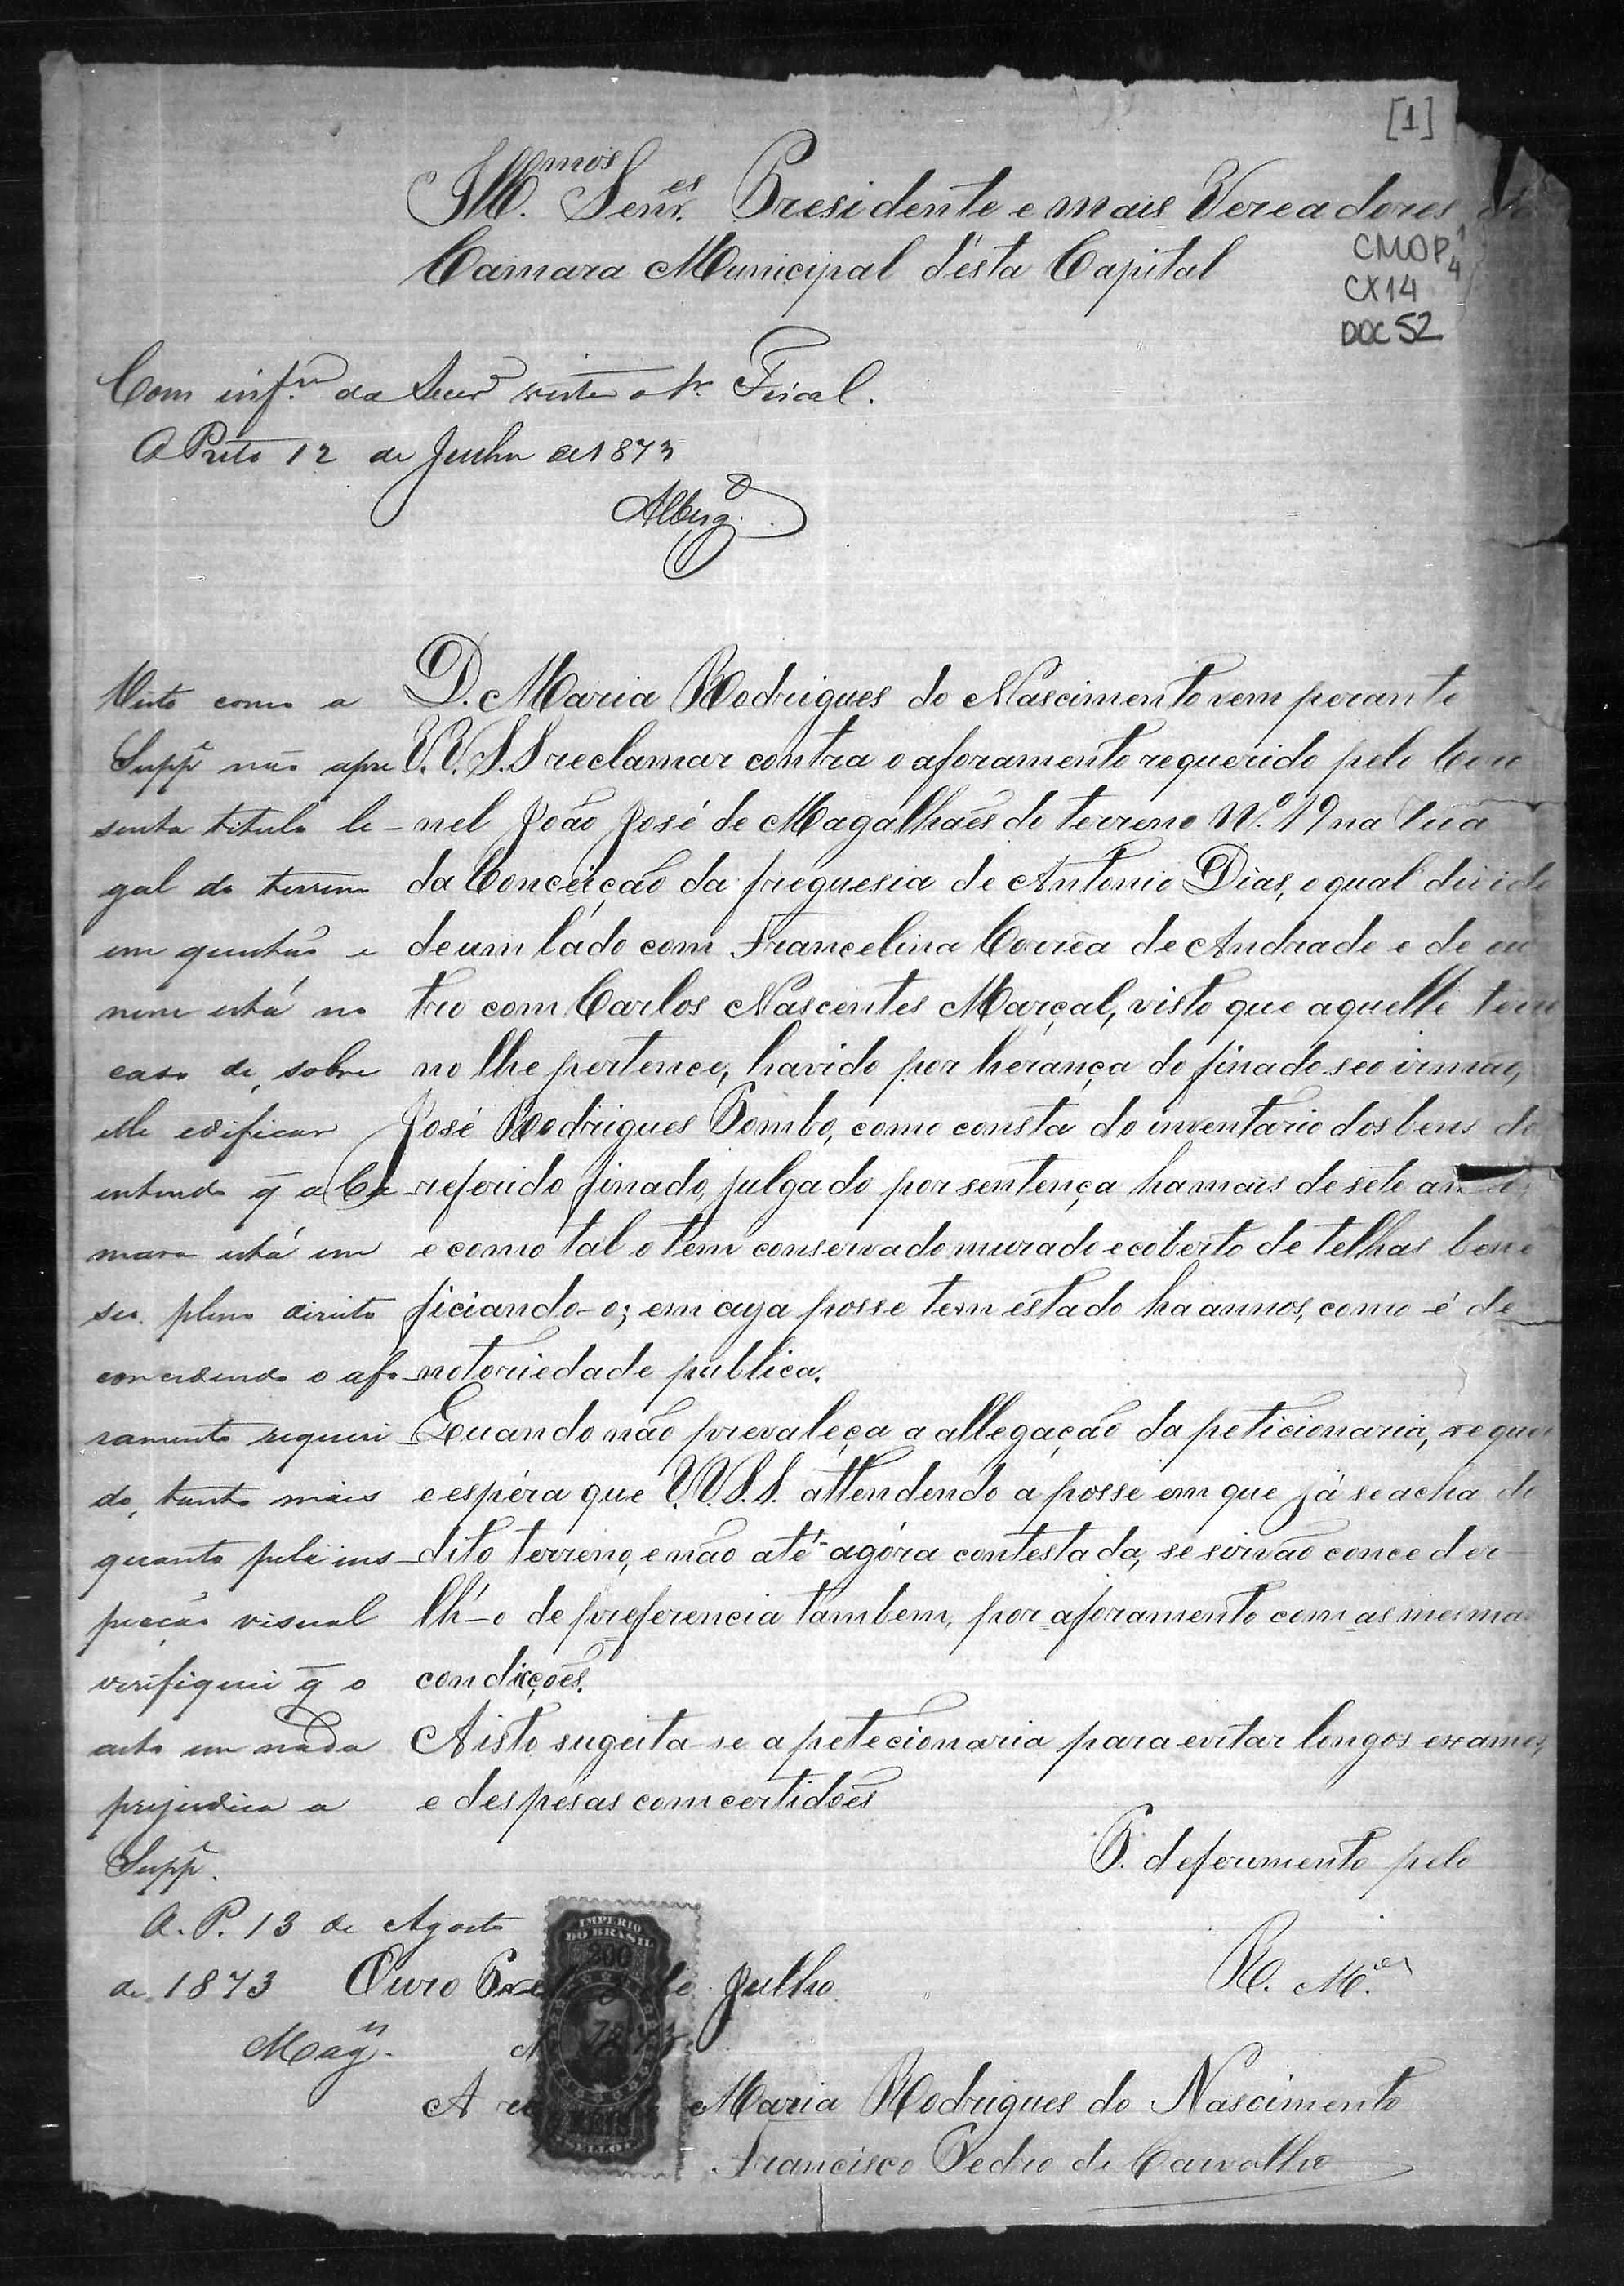 [1]
Ill.mos Senr.es Presidente e mais Vereadores da
Camara Municipal d'ésta Capital
CMOP 1/4
CX14
DOC 52
Com inf.m da Secr.a Fiscal.
O Preto 12 de Junho de 1873
Albuq.
D. Maria Rodrigues do Nascimento vem perante
V.V. S.S reclamar contra o aforamento requerido pelo Coro
nel João José de Magalhaẽs do terreno N.º 19 na Rua
da Conceição da freguesia de Antonio Dias, o qual divide
de um lado com Francelina Corrêa de Andrade e de ou
tro com Carlos Nascentes Marçal, visto que aquelle terre
no lhe pertence, havido por herança do finado seo irmaõ,
José Rodrigues Pombo, como consta do inventario dos bens do
referido finado, julgado por sentença ha mais de sete annos,
e como tal o tem conservado murado e coberto de telhas bene
ficiando-o; em cuja posse tem estado ha annos, como é de
notoriedade publica.
Quando não prevaleça a allegação da peticionaria, requer
e espéra que V.V.S.S. attendendo á posse em que já se acha do
dito terreno, e não até agóra contestada, se sirvão conceder
lh'-o de preferencia tambem, por aforamento com as mesmas
condicçoẽs.
A isto sugeita-se a petecionaria para evitar longos exames,
e despesas com certidoẽs
P. deferimento pelo
R. M.ce
Visto como a
Supp.e não apre
senta titulo le-
gal do terreno
em questão e
nem está no
caso de, sobre
elle edificar
entendo q̃ a Ca
mara está em
seo pleno direito
concedendo o afo
ramento requeri
do, tanto mais
quanto pela ins
pecção visual
verifiquei q̃ o
acto em nada
prejudica a
Supp.e
O. P. 13 de Agosto
de 1873
Mag.es
Ouro Preto de Julho
1873
IMPERIO
DO BRASIL
200
SELLO
A Maria Rodrigues do Nascimento
Francisco Pedro de Carvalho